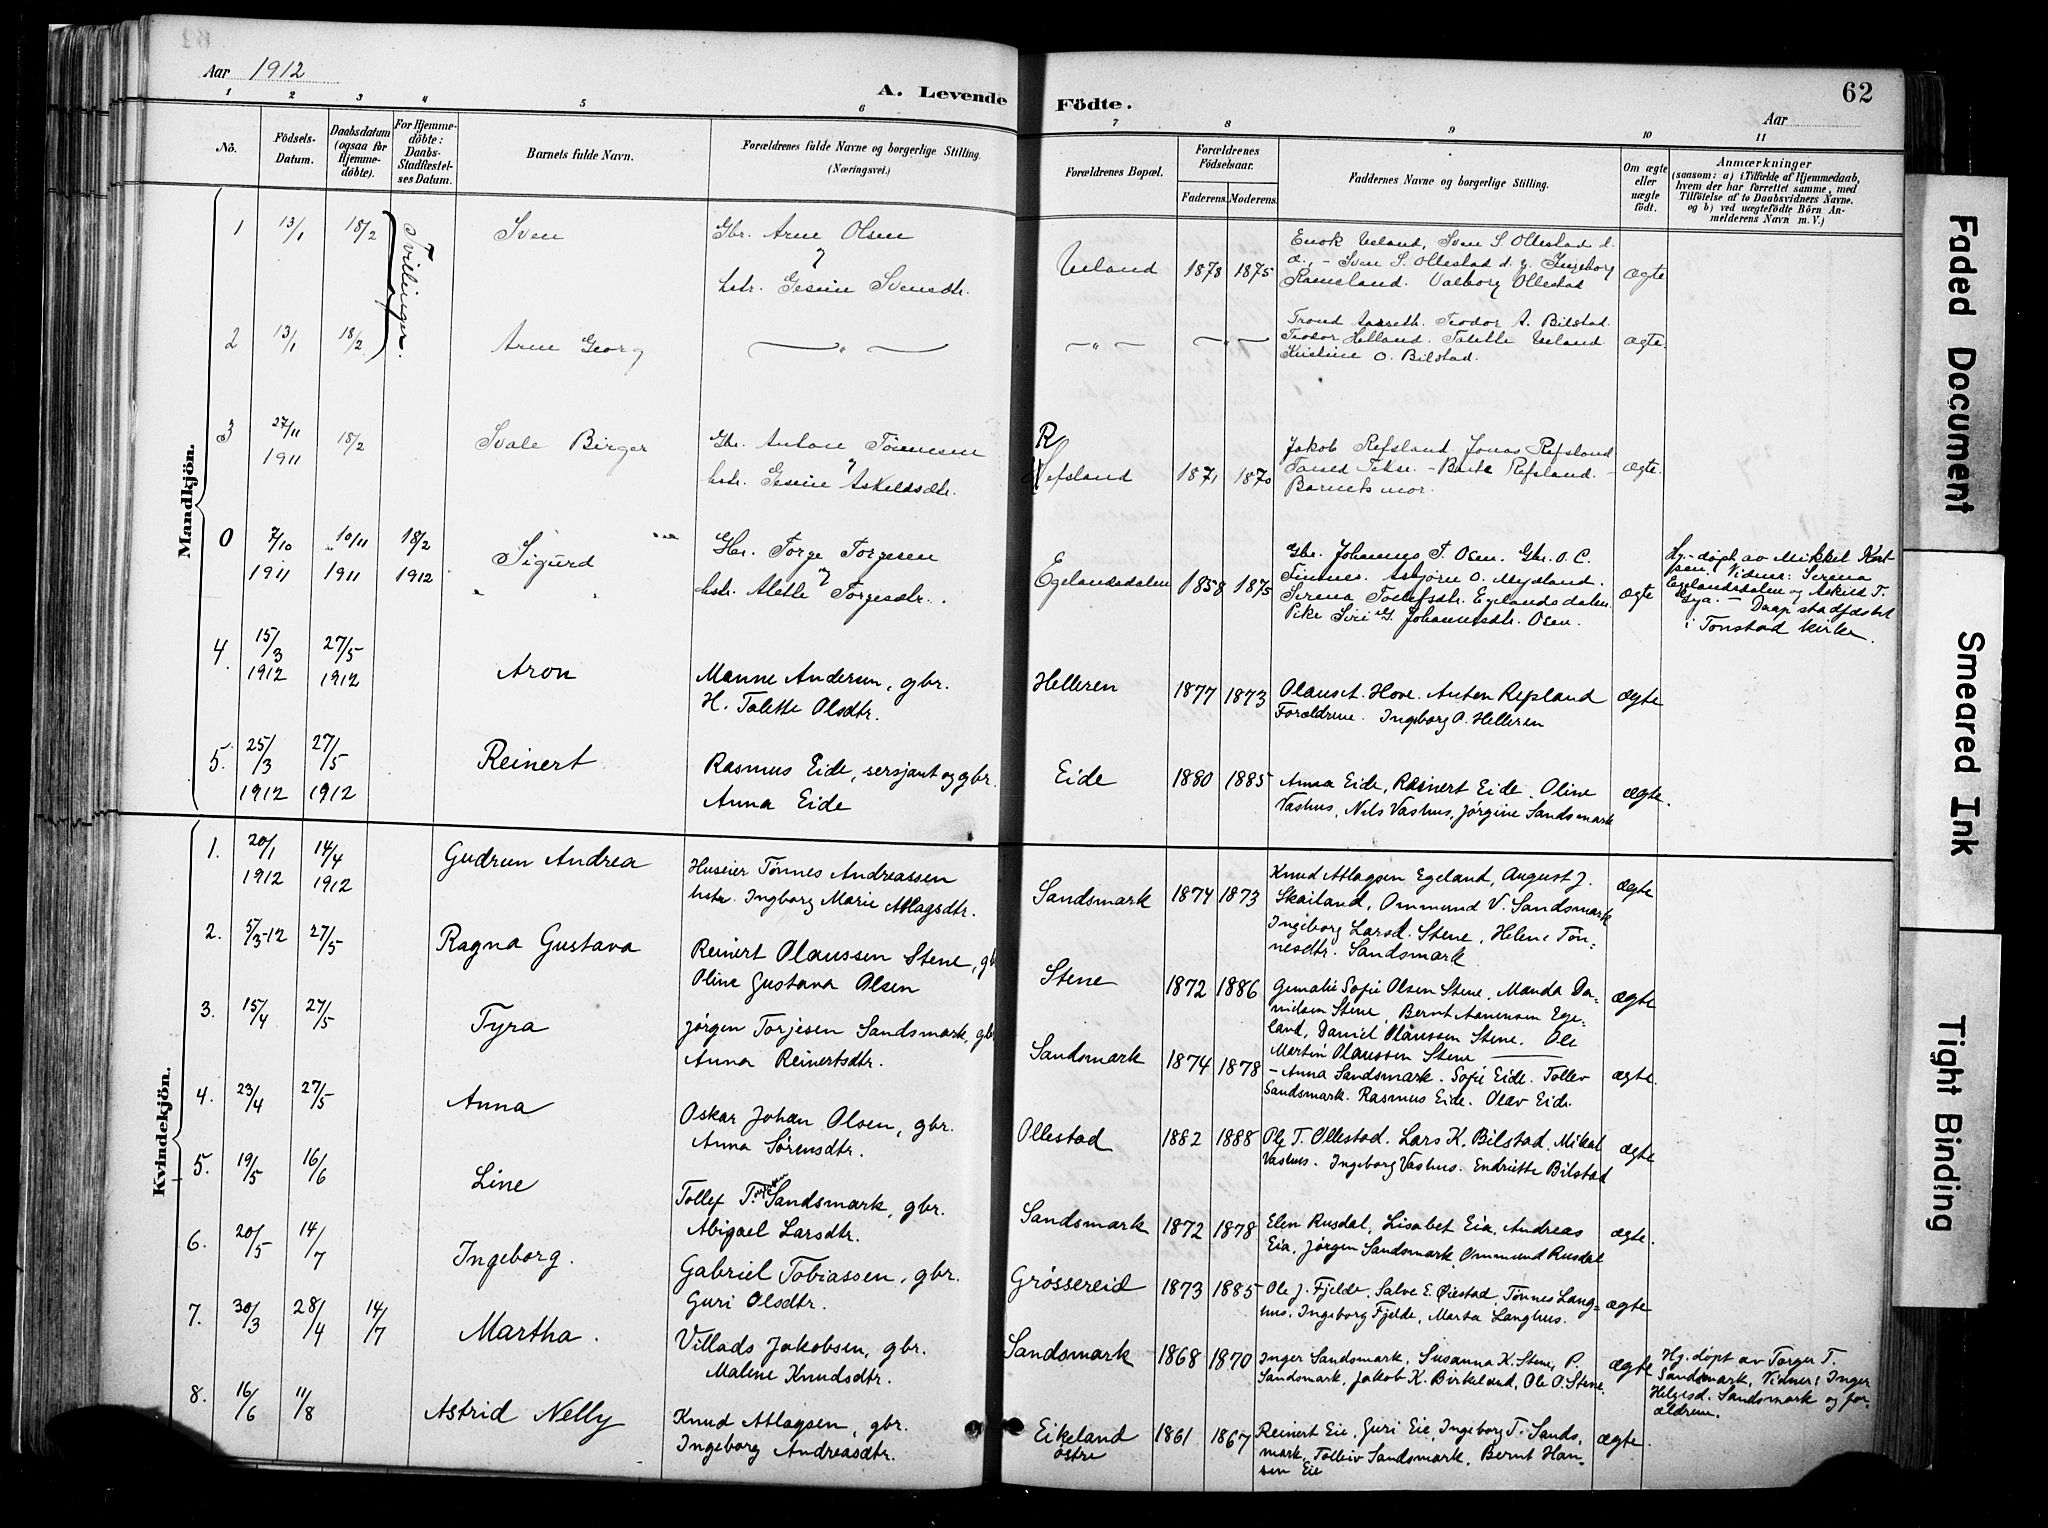 Aar 1912
A. Levende Födte.
62
Aar
1 2 3 4 5 6 7 8 9 10 11
Nö.
Födsels-Datum.
Daabsdatum (ogsaa for Hjemmedöbte).
For Hjemmedöbte: Daabs-Stadfæstelses Datum.
Barnets fulde Navn.
Forældrenes fulde Navne og borgerlige Stilling.
(Næringsvei.)
Forældrenes Bopæl.
Forældrenes Födselsaar.
Faderens. Moderens.
Faddernes Navne og borgerlige Stilling.
Om ægte eller uægte födt.
Anmærkninger
(saasom: a) i Tilfælde af Hjemmedaab,
hvem der har forrettet samme, med
Tilföielse af to Daabsvidners Navne.
og b) ved uægtefödte Börn An-
melderens Navn m. V.)
Mandkjön.
1 13/1 18/2 Tvillinger. Sven Gbr. Arne Olsen
hstr. Gesine Svensdtr.
Ueland 1878 1875
Enok Ueland, Sven S. Ollestad d.
æ., - Sven S. Ollestad d. y. Ingeborg
Ramsland. Valborg Ollestad
ægte
2 13/1 18/2 Arne Georg — „ —
— „ — — „ —
Trond Aamreth. Teodor A. Bilstad.
Teodor Helland. Talette Ueland
Kristine O. Bilstad.
ægte.
3 27/11 1911 18/2 Svale Birger Gbr. Anton Tönnesen
hstr. Gesine Askildsdtr.
R
Refsland 1871 1870
Jakob Refsland Jonas Refsland
Barnets mor.
ægte.
0 7/10 1911 10/11 1911 18/2 1912 Sigurd Gbr. Torge Torgesen
hstr. Alette Torgesdtr.
Egelandsdalen 1858 1875
Gbr. Johannes T. Osen. Gbr. O. C.
Fintnes. Asbjörn O. Mydland.
Serena Tollefsdtr. Egelandsdalen
Pike Siri G. Johannesdtr. Osen.
ægte
Hj.-döpt av Mikkel Kort-
sen, Vidner: Serena
Egelandsdalen og Askild T.
Eya. — Daap stadfæstet
i Tonstad kirke.
4. 15/3 1912 27/5 1912 Aron Manne Andersen, gbr.
H. Talette Olsdtr.
Helleren 1877 1873
Olaus A. Hove. Anton Refsland
Forældrene. Ingeborg A. Helleren
ægte
5. 25/3 1912 27/5 1912 Reinert Rasmus Eide, sersjant og gbr.
Anna Eide
Eide 1880 1885
Anna Eide, Reinert Eide. Oline
Vashus, Nils Vashus, Jørgine Sandsmark
ægte.
Kvindekjön.
1. 20/1 1912 14/4 1912 Gudrun Andrea Huseier Tønnes Andreassen
hstr. Ingborg Marie Atlagsdtr.
Sandsmark 1874 1873
Knud Atlagsen Egeland, August J.
Skailand, Ommund V. Sandsmark
Ingeborg Larsd. Stene, Helene Tøn-
nesdtr. Sandsmark
ægte
2. 5/3-12 27/5 Ragna Gustava Reinert Olaussen Stene, gb
Oline Gustava Olsen
Stene 1872 1886
Gemalie Sofie Olsen Stene, Manda Da-
nielsen Stene, Bernt Aanensen Ege-
land, Daniel Olaussen Stene. Ole
Martin Olaussen Stene
ægte
3. 15/4 27/5 Tyra Jørgen Torjesen Sandsmark, gb
Anna Reinertsdtr.
Sandsmark 1874 1878
- Anna Sandsmark. Sofie Eide. Tollev
Sandsmark. Rasmus Eide. Olav Eide.
ægte.
4. 23/4 27/5 Anna Oskar Johan Olsen, gbr.
Anna Sørensdtr.
Ollestad 1882 1888
Ole T. Ollestad. Lars K. Bilstad. Mikal
Vashus. Ingeborg Vashus. Endriette Bilstad
ægte
5. 19/5 16/6 Line Tollef T. Sandsmark, gbr.
Abigael Larsdtr.
Sandsmark 1872 1878
Elen Rusdal, Lisabet Eia, Andreas
Eia, Jørgen Sandsmark, Ommund Rusdal
ægte.
6. 20/5 14/7 Ingeborg. Gabriel Tobiassen, gbr.
Guri Olsdtr.
Grössereid 1873 1885
Ole J. Fjelde. Salve E. Øiestad, Tønnes Lang-
hus. Ingeborg Fjelde, Marta Langhus.
ægte
7. 30/3 28/4 14/7 Martha. Villads Jakobsen, gbr.
Malene Knudsdtr.
Sandsmark 1868 1870
Inger Sandsmark, Susanna K. Stene, P.
Sandsmark, Jakob K. Birkeland, Ole O. Stene.
ægte
Hj. döpt av Torger T.
Sandsmark, Vidner: Inger
Helgesd. Sandsmark og for-
ældrene.
8. 16/6 11/8 Astrid Nelly Knud Atlagsen, gbr.
Ingeborg Andreasdtr.
Eikeland østre 1861 1867
Reinert Eie, Guri Eie, Ingeborg T. Sands-
mark, Tolleiv Sandsmark, Bernt Han-
sen Eie
ægte.
Faded Document
Smeared Ink
Tight Binding